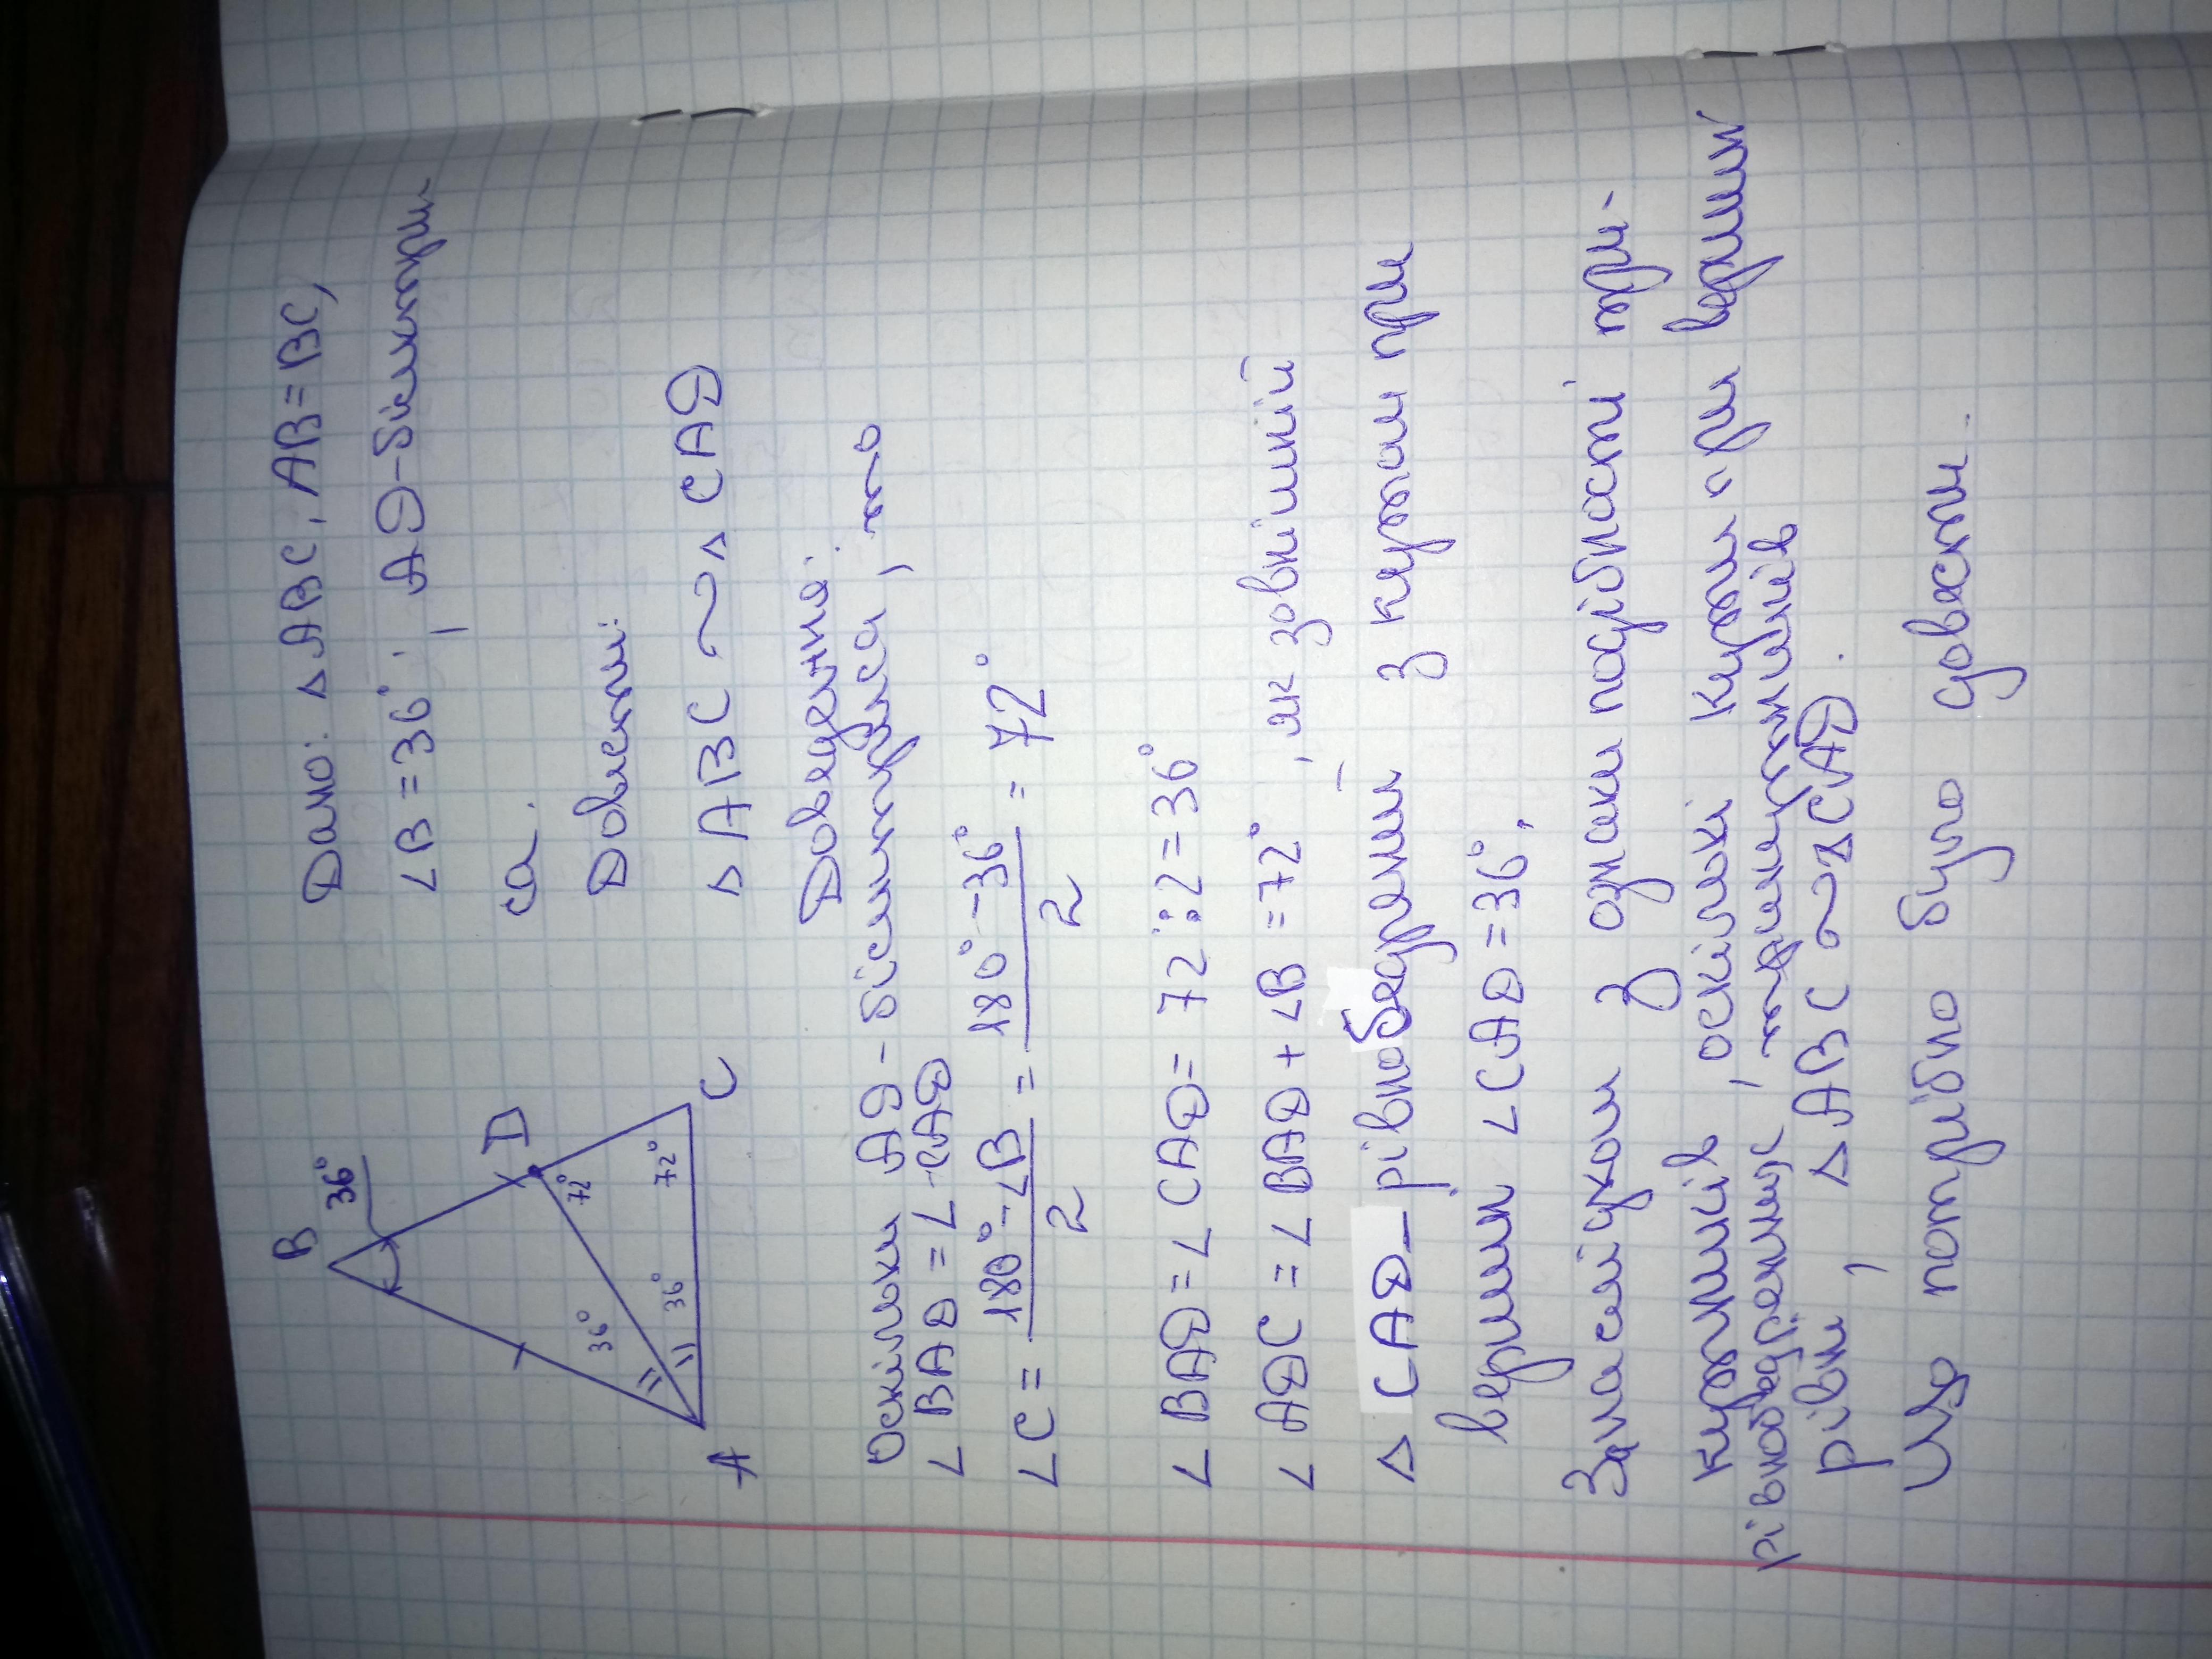 B
36°
D
72°
36°
36°
72°
A
C
Дано: △ABC, AB=BC,
∠B=36°, AD-бісектри-
са.
Довести:
△ABC ~ △CAD
Доведення:
Оскільки AD - бісектриса, то
∠BAD = ∠CAD
∠C = (180°-∠B)/2 = (180°-36°)/2 = 72°
∠BAD = ∠CAD = 72°:2=36°
∠ADC = ∠BAD + ∠B =72°, як зовнішній
△ CAD - рівнобедрений з кутом при
вершині ∠CAD=36°,
За наслідком з ознаки подібності три-
кутників, оскільки кути при вершині
рівнобедрених трикутників
рівні, △ABC ~ △CAD.
Що потрібно було довести.